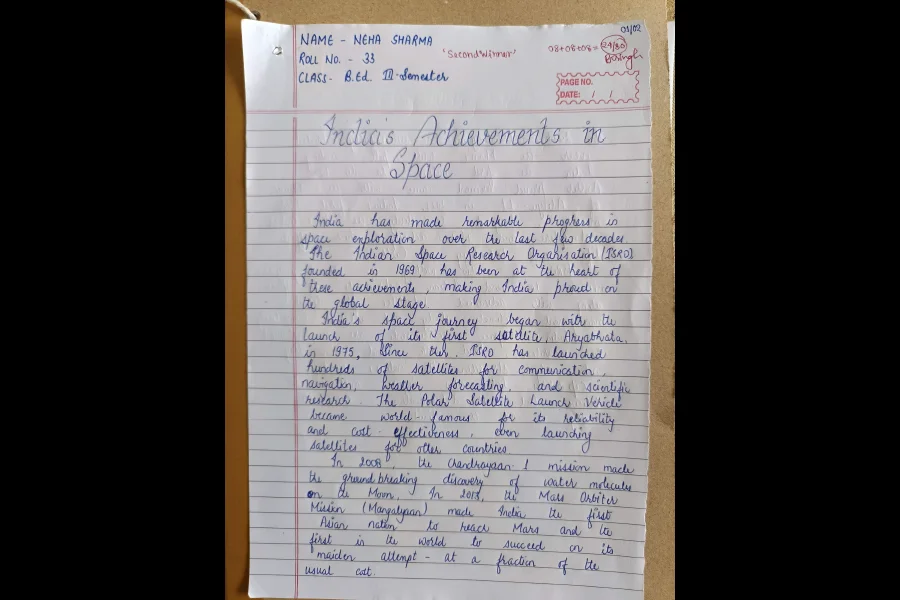 01/02
NAME - NEHA SHARMA
'Second Winner'
08+08+08= 24/30
ROLL NO. - 33
CLASS- B.Ed. III-Semester
PAGE NO.
DATE: / /
India's Achievements in
Space
India has made remarkable progress in
space exploration over the last few decades
The Indian Space Research Organisation (ISRO)
founded in 1969, has been at the heart of
these achievements, making India proud on
the global stage
India's space journey began with the
launch of its first satellite, Aryabhata,
in 1975, Since then, ISRO has launched
hundreds of satellites for communication,
navigation, weather forecasting, and scientific
research. The Polar Satellite Launch Vehicle
became world-famous for its reliability
and cost-effectiveness, even launching
satellites for other countries
In 2008, the Chandrayaan-1 mission made
the groundbreaking discovery of water molecules
on the Moon. In 2013, the Mars Orbiter
Mission (Mangalyaan) made India the first
Asian nation to reach Mars and the
first in the world to succeed on its
maiden attempt - at a fraction of the
usual cost.